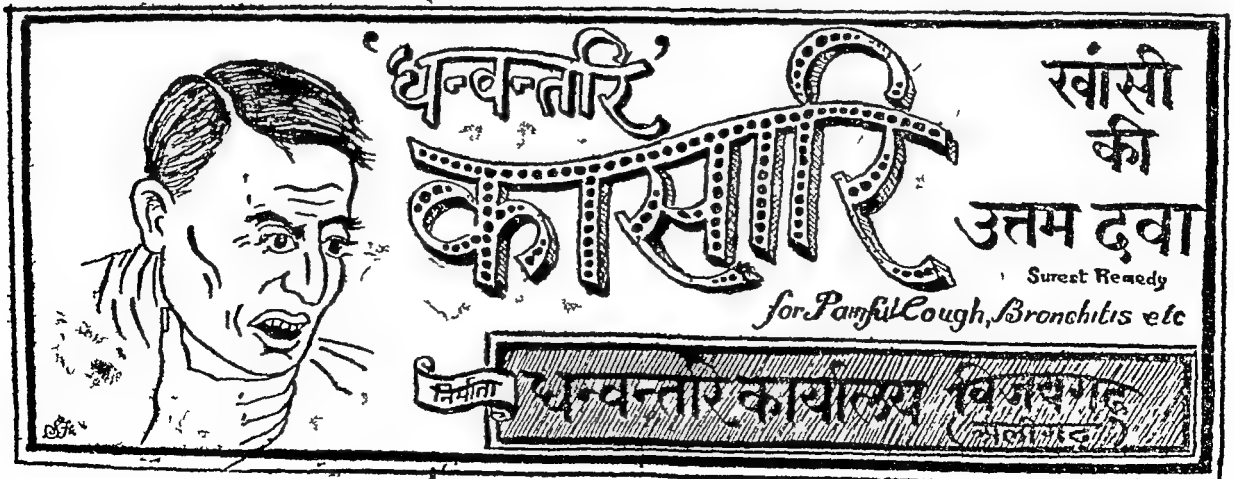 'धन्वन्तरि'
कासारि
खांसी
की
उत्तम दवा
Surest Remedy
for Painful Cough, Bronchitis etc
निर्माता
धन्वन्तरि कार्यालय विजयगढ़
अलीगढ़